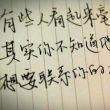 有些人看起来
其实你不知道
想要联系你的